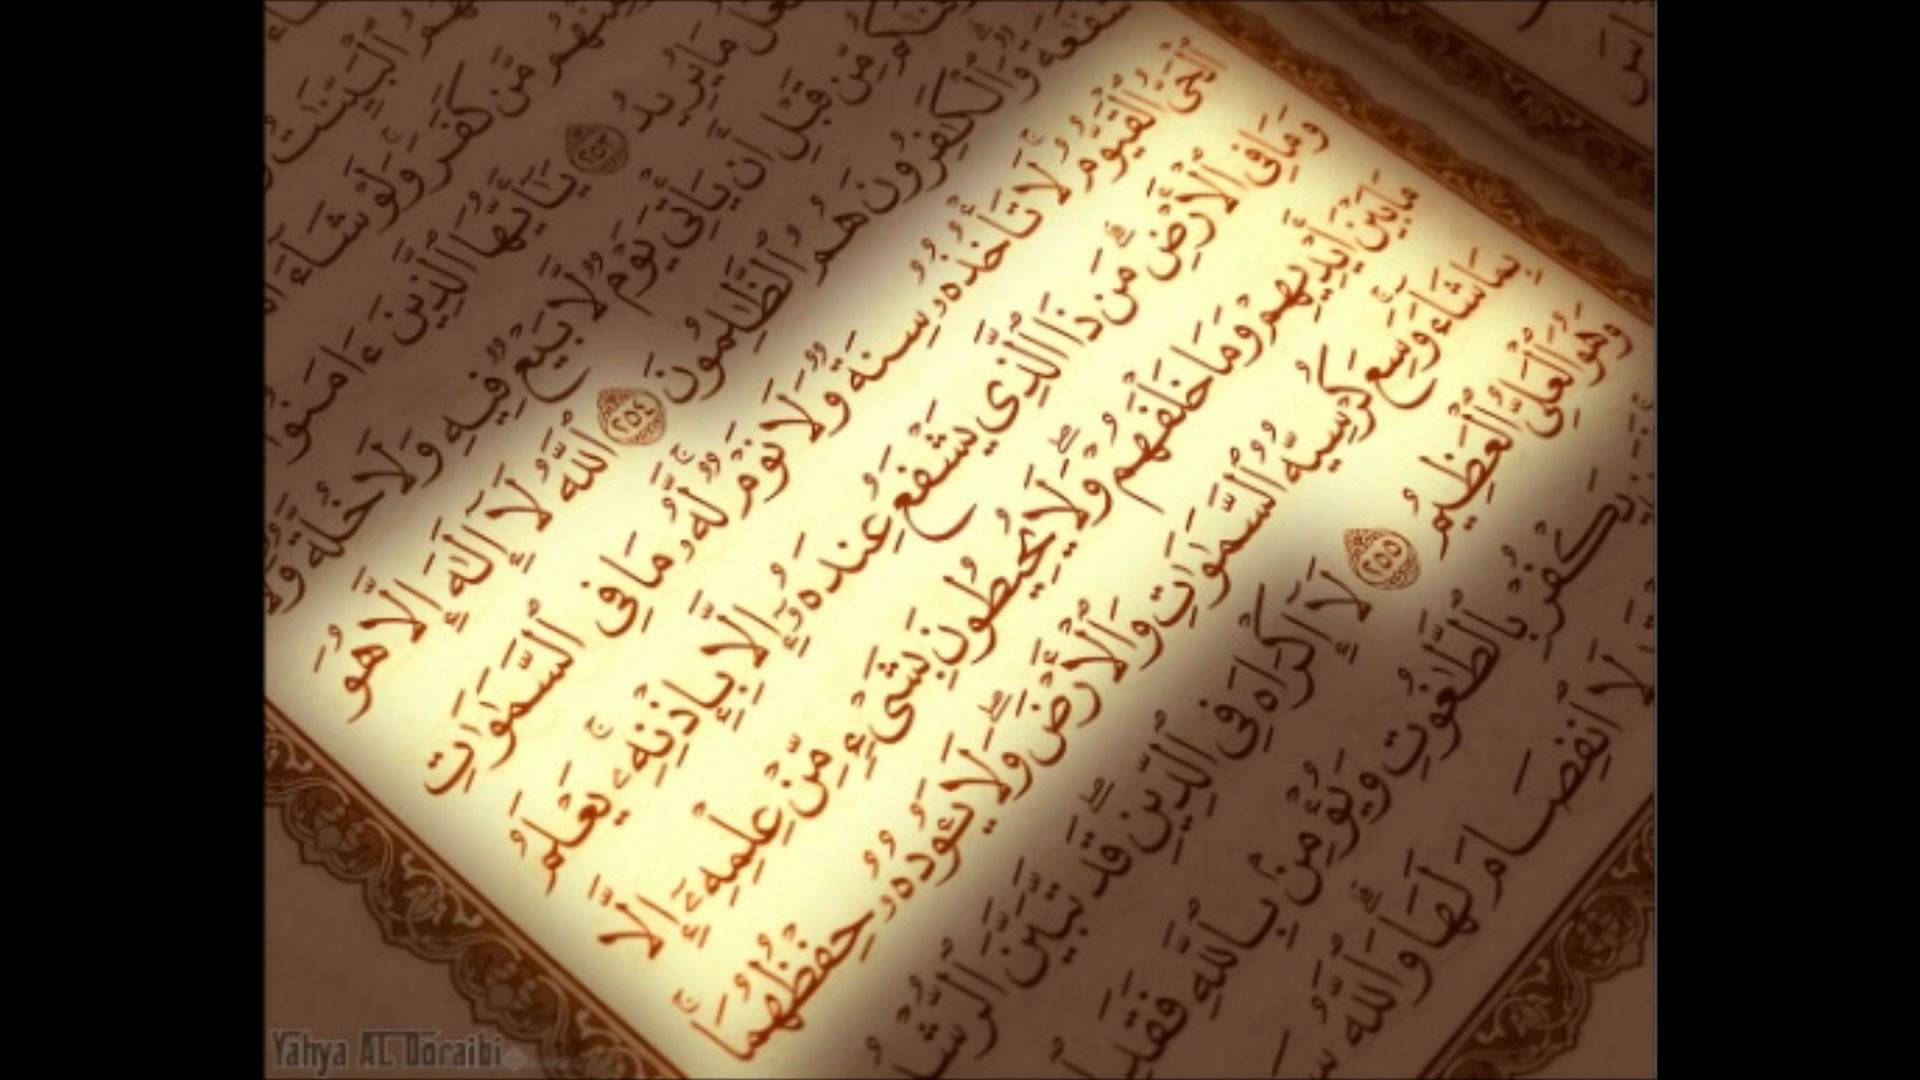 ٱلْبَيِّنَٰتُ
مَّن كَفَرَ وَلَوْ شَآءَ
مَا يُرِيدُ ٢٥٣ يَٰٓأَيُّهَا ٱلَّذِينَ ءَامَنُوٓا۟
مِّن قَبْلِ أَن يَأْتِىَ يَوْمٌ لَّا بَيْعٌ فِيهِ وَلَا خُلَّةٌ وَلَا
شَفَٰعَةٌ وَٱلْكَٰفِرُونَ هُمُ ٱلظَّٰلِمُونَ ٢٥٤ ٱللَّهُ لَآ إِلَٰهَ إِلَّا هُوَ
ٱلْحَىُّ ٱلْقَيُّومُ لَا تَأْخُذُهُۥ سِنَةٌ وَلَا نَوْمٌ لَّهُۥ مَا فِى ٱلسَّمَٰوَٰتِ
وَمَا فِى ٱلْأَرْضِ مَن ذَا ٱلَّذِى يَشْفَعُ عِندَهُۥٓ إِلَّا بِإِذْنِهِۦ يَعْلَمُ
مَا بَيْنَ أَيْدِيهِمْ وَمَا خَلْفَهُمْ وَلَا يُحِيطُونَ بِشَىْءٍ مِّنْ عِلْمِهِۦٓ إِلَّا
بِمَا شَآءَ وَسِعَ كُرْسِيُّهُ ٱلسَّمَٰوَٰتِ وَٱلْأَرْضَ وَلَا يَـُٔودُهُۥ حِفْظُهُمَا
وَهُوَ ٱلْعَلِىُّ ٱلْعَظِيمُ ٢٥٥ لَآ إِكْرَاهَ فِى ٱلدِّينِ قَد تَّبَيَّنَ ٱلرُّشْدُ
يَكْفُرْ بِٱلطَّٰغُوتِ وَيُؤْمِنۢ بِٱللَّهِ فَقَدِ
لَا ٱنفِصَامَ لَهَا وَٱللَّهُ
Yahya AL Doraibi